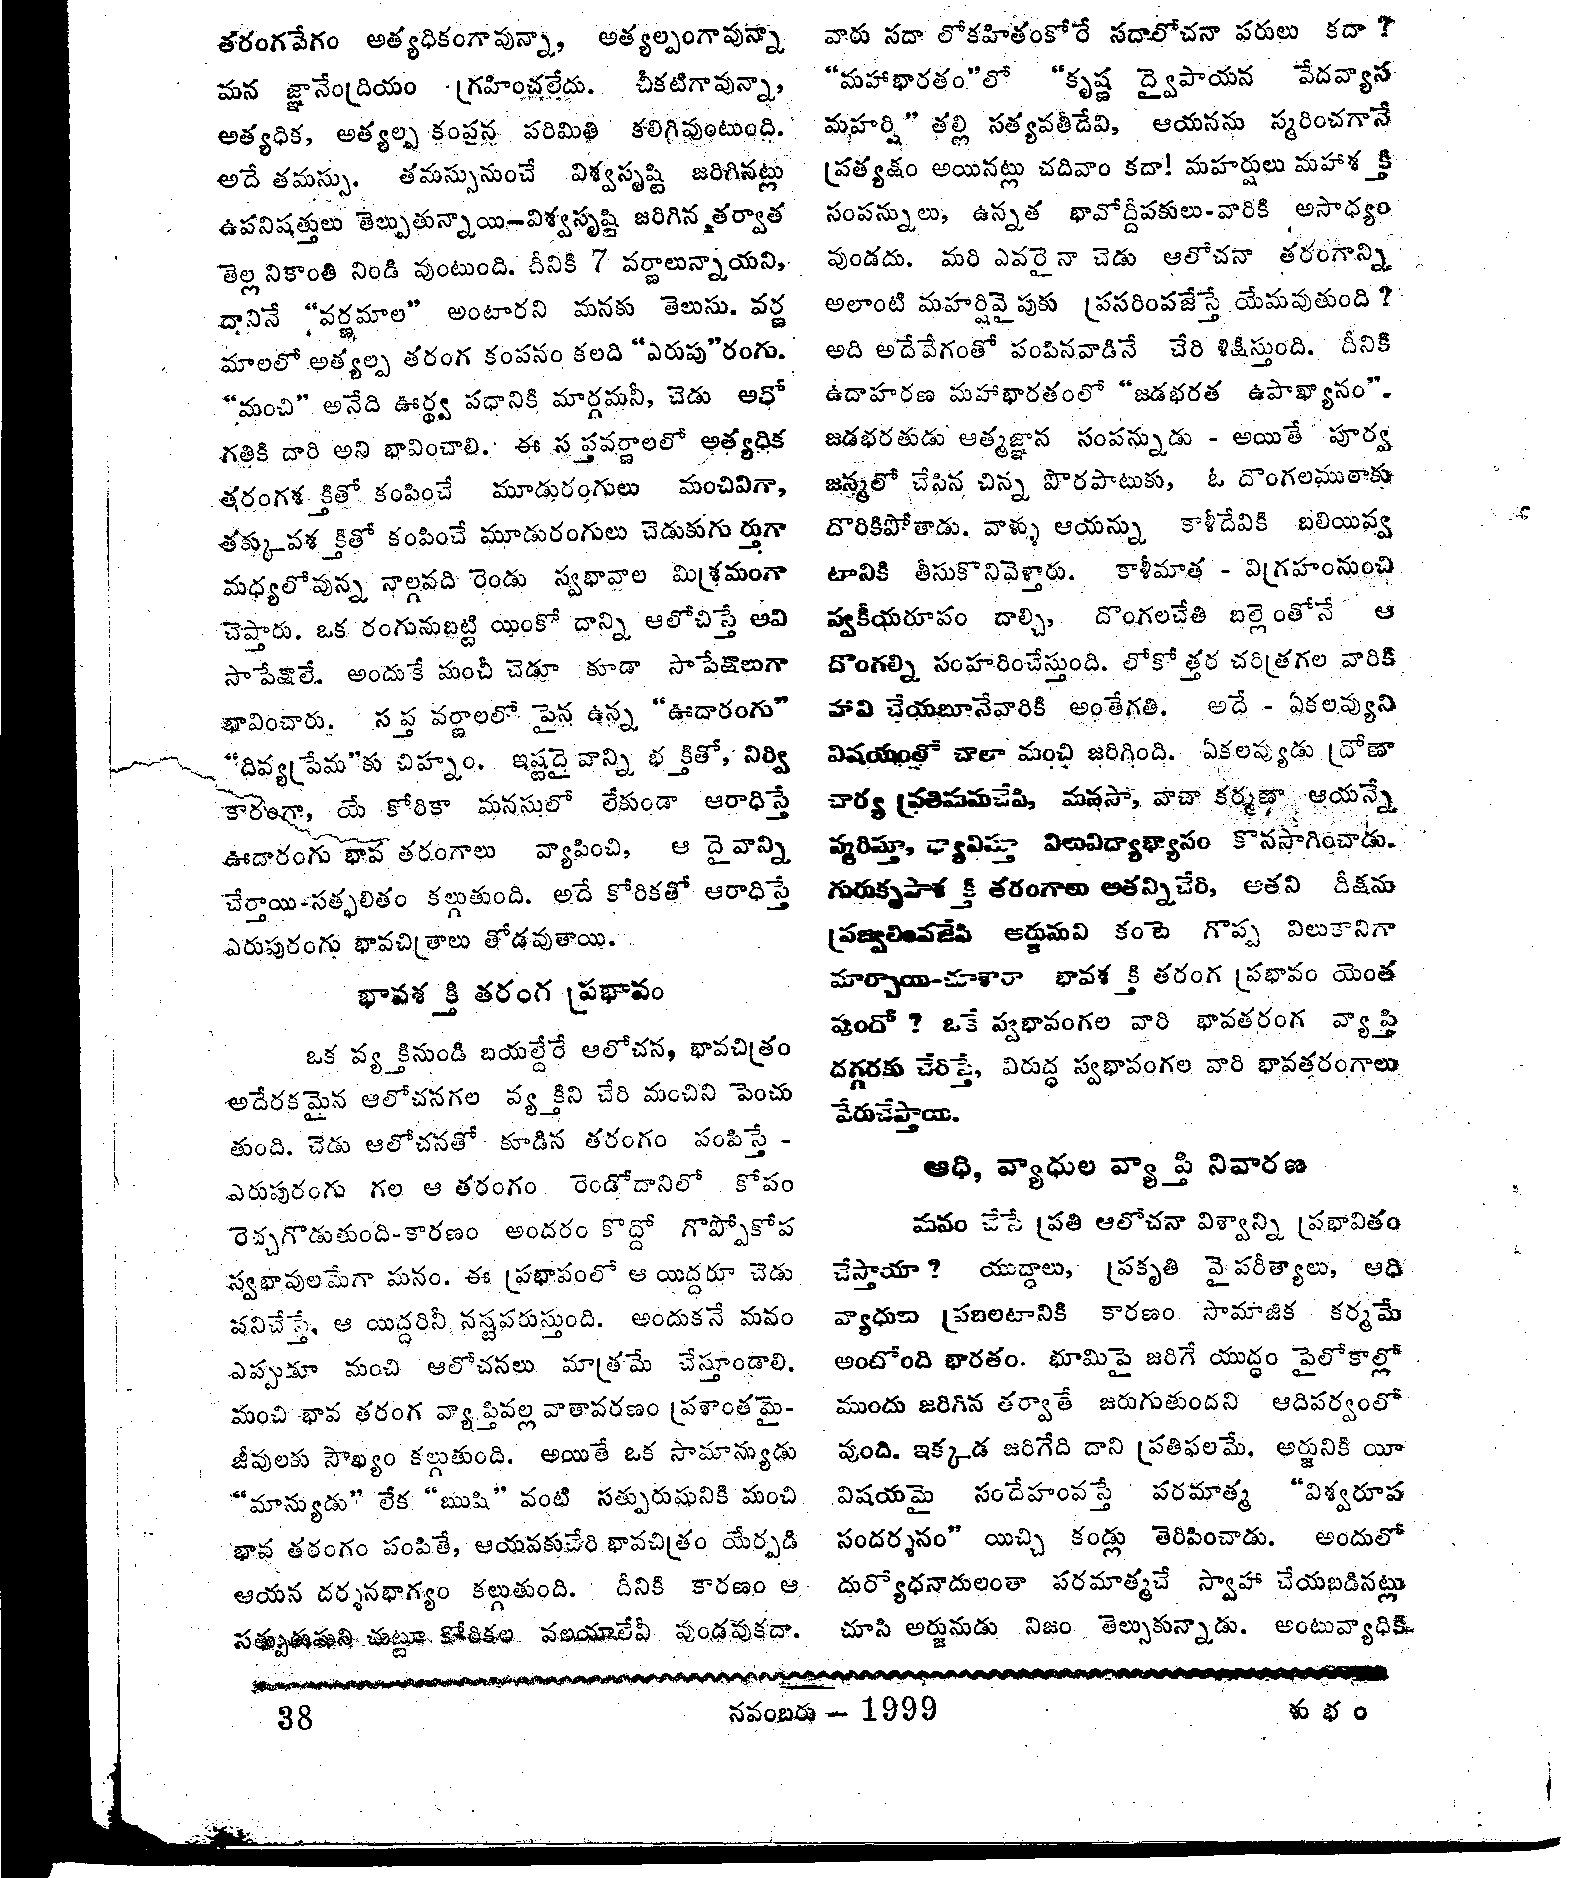 తరంగవేగం అత్యధికంగావున్నా, అత్యల్పంగావున్నా
మన జ్ఞానేంద్రియం గ్రహించలేదు. చీకటిగావున్నా,
అత్యధిక, అత్యల్ప కంపన పరిమితి కలిగివుంటుంది.
అదే తమస్సు. తమస్సునుంచే విశ్వసృష్టి జరిగినట్లు
ఉపనిషత్తులు తెల్పుతున్నాయి-విశ్వసృష్టి జరిగిన తర్వాత
తెల్లనికాంతి నిండి వుంటుంది. దీనికి 7 వర్ణాలున్నాయని,
దానినే “వర్ణమాల” అంటారని మనకు తెలుసు. వర్ణ
మాలలో అత్యల్ప తరంగ కంపనం కలది “ఎరుపు”రంగు.
“మంచి” అనేది ఊర్థ్వ పధానికి మార్గమనీ, చెడు అధో
గతికి దారి అని భావించాలి. ఈ సప్తవర్ణాలలో అత్యధిక
తరంగశక్తితో కంపించే మూడురంగులు మంచివిగా,
తక్కువశక్తితో కంపించే మూడురంగులు చెడుకుగుర్తుగా
మధ్యలోవున్న నాల్గవది రెండు స్వభావాల మిశ్రమంగా
చెప్తారు. ఒక రంగునుబట్టి యింకో దాన్ని ఆలోచిస్తే అవి
సాపేక్షాలే. అందుకే మంచీ చెడూ కూడా సాపేక్షాలుగా
భావించారు. సప్త వర్ణాలలో పైన ఉన్న “ఊదారంగు”
“దివ్యప్రేమ”కు చిహ్నం. ఇష్టదైవాన్ని భక్తితో, నిర్వి
కారంగా, యే కోరికా మనసులో లేకుండా ఆరాధిస్తే
ఊదారంగు భావ తరంగాలు వ్యాపించి, ఆ దైవాన్ని
చేర్తాయి-సత్ఫలితం కల్గుతుంది. అదే కోరికతో ఆరాధిస్తే
ఎరుపురంగు భావచిత్రాలు తోడవుతాయి.
భావశక్తి తరంగ ప్రభావం
ఒక వ్యక్తినుండి బయల్దేరే ఆలోచన, భావచిత్రం
అదేరకమైన ఆలోచనగల వ్యక్తిని చేరి మంచిని పెంచు
తుంది. చెడు ఆలోచనతో కూడిన తరంగం పంపిస్తే -
ఎరుపురంగు గల ఆ తరంగం రెండోదానిలో కోపం
రెచ్చగొడుతుంది-కారణం అందరం కొద్దో గొప్పోకోప
స్వభావులమేగా మనం. ఈ ప్రభావంలో ఆ యిద్దరూ చెడు
పనిచేస్తే, ఆ యిద్దరినీ నష్టపరుస్తుంది. అందుకనే మనం
ఎప్పుడూ మంచి ఆలోచనలు మాత్రమే చేస్తూండాలి.
మంచి భావ తరంగ వ్యాప్తివల్ల వాతావరణం ప్రశాంతమై-
జీవులకు సౌఖ్యం కల్గుతుంది. అయితే ఒక సామాన్యుడు
“మాన్యుడు” లేక “ఋషి” వంటి సత్పురుషునికి మంచి
భావ తరంగం పంపితే, ఆయనకుచేరి భావచిత్రం యేర్పడి
ఆయన దర్శనభాగ్యం కల్గుతుంది. దీనికి కారణం ఆ
సత్పురుషుని చుట్టూ కోరికల వలయాలేవీ వుండవుకదా.
వారు సదా లోకహితంకోరే సదాలోచనా పరులు కదా ?
“మహాభారతం”లో “కృష్ణ ద్వైపాయన వేదవ్యాస
మహర్షి” తల్లి సత్యవతీదేవి, ఆయనను స్మరించగానే
ప్రత్యక్షం అయినట్లు చదివాం కదా! మహర్షులు మహాశక్తి
సంపన్నులు, ఉన్నత భావోద్దీపకులు-వారికి అసాధ్యం
వుండదు. మరి ఎవరైనా చెడు ఆలోచనా తరంగాన్ని
అలాంటి మహర్షివైపుకు ప్రసరింపజేస్తే యేమవుతుంది ?
అది అదేవేగంతో పంపినవాడినే చేరి శిక్షిస్తుంది. దీనికి
ఉదాహరణ మహాభారతంలో “జడభరత ఉపాఖ్యానం”.
జడభరతుడు ఆత్మజ్ఞాన సంపన్నుడు - అయితే పూర్వ
జన్మలో చేసిన చిన్న పొరపాటుకు, ఓ దొంగలముఠాకు
దొరికిపోతాడు. వాళ్ళు ఆయన్ను కాళీదేవికి బలియివ్వ
టానికి తీసుకొనివెళ్తారు. కాళీమాత - విగ్రహంనుంచి
స్వకీయరూపం దాల్చి, దొంగలచేతి బల్లెంతోనే ఆ
దొంగల్ని సంహారించేస్తుంది. లోకోత్తర చరిత్రగల వారికి
హాని చేయబూనేవారికి అంతేగతి. అదే - ఏకలవ్యుని
విషయంతో చాలా మంచి జరిగింది. ఏకలవ్యుడు ద్రోణా
చార్య ప్రతిమనుచేసి, మనసా, వాచా కర్మణా ఆయన్నే
స్మరిస్తూ, ధ్యానిస్తూ విలువిద్యాభ్యాసం కొనసాగించాడు.
గురుకృపాశక్తి తరంగాలు అతన్నిచేరి, అతని దీక్షను
ప్రజ్వలింపజేసి అర్జునుని కంటె గొప్ప విలుకానిగా
మార్చాయి-చూశారా భావశక్తి తరంగ ప్రభావం యెంత
వుందో ? ఒకే స్వభావంగల వారి భావతరంగ వ్యాప్తి
దగ్గరకు చేరిస్తే, విరుద్ధ స్వభావంగల వారి భావతరంగాలు
వేరుచేస్తాయి.
ఆధి, వ్యాధుల వ్యాప్తి నివారణ
మనం చేసే ప్రతి ఆలోచనా విశ్వాన్ని ప్రభావితం
చేస్తాయా ? యుద్ధాలు, ప్రకృతి వైపరీత్యాలు, ఆధి
వ్యాధులు ప్రబలటానికి కారణం సామాజిక కర్మమే
అంటోంది భారతం. భూమిపై జరిగే యుద్ధం పైలోకాల్లో
ముందు జరిగిన తర్వాతే జరుగుతుందని ఆదిపర్వంలో
వుంది. ఇక్కడ జరిగేది దాని ప్రతిఫలమే. అర్జునికి యీ
విషయమై సందేహంవస్తే పరమాత్మ “విశ్వరూప
సందర్శనం” యిచ్చి కండ్లు తెరిపించాడు. అందులో
దుర్యోధనాదులంతా పరమాత్మచే స్వాహా చేయబడినట్లు
చూసి అర్జునుడు నిజం తెల్సుకున్నాడు. అంటువ్యాధికి
38 నవంబరు - 1999 శుభం